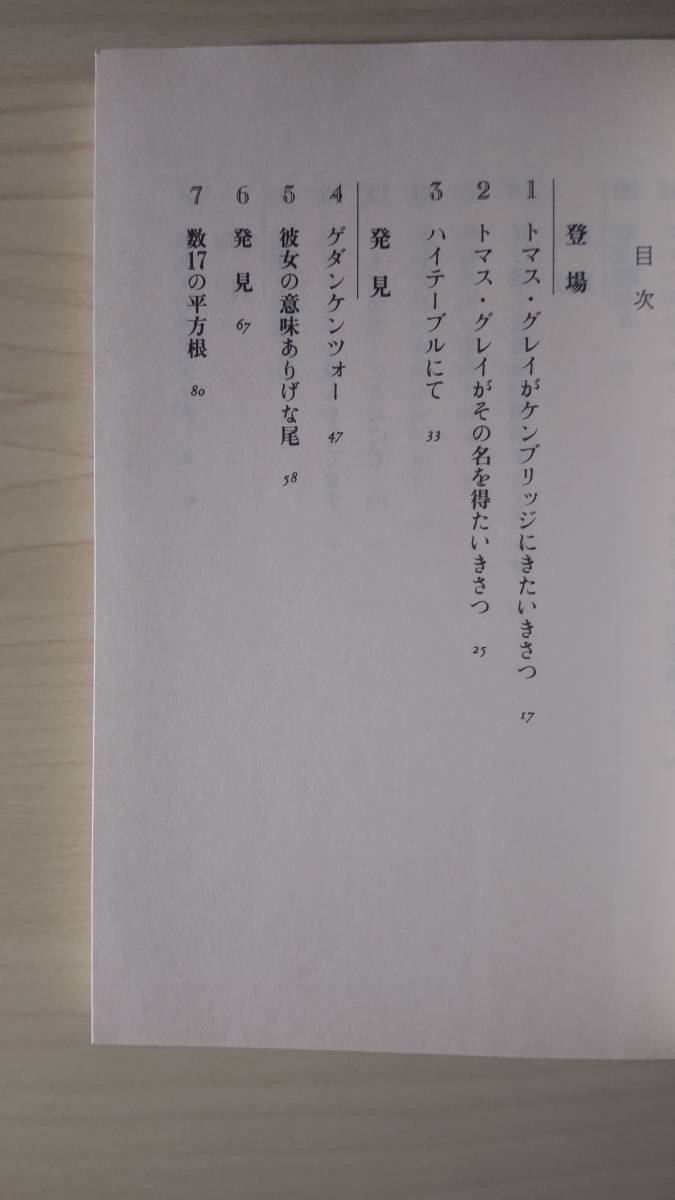 目次
登場
1 トマス・グレイがケンブリッジにきたいきさつ 17
2 トマス・グレイがその名を得たいきさつ 25
3 ハイテーブルにて 33
発見
4 ゲダンケンツォー 47
5 彼女の意味ありげな尾 58
6 発見 67
7 数17の平方根 80